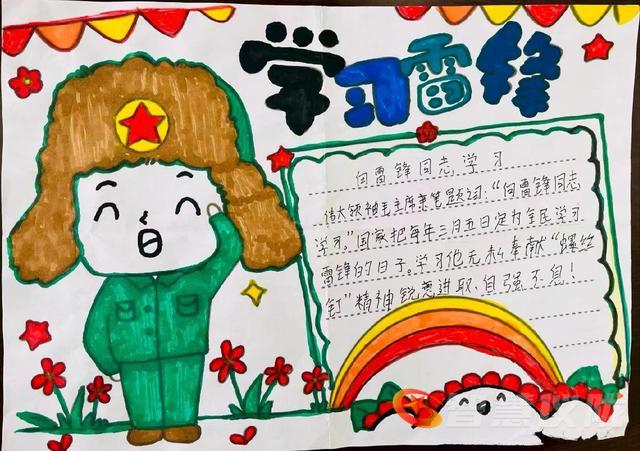 学习雷锋
向雷锋同志学习
伟大领袖毛主席亲笔题词:“向雷锋同志
学习”国家把每年三月五日定为全民学习
雷锋的日子。学习他无私奉献“螺丝
钉”精神锐意进取、自强不息!